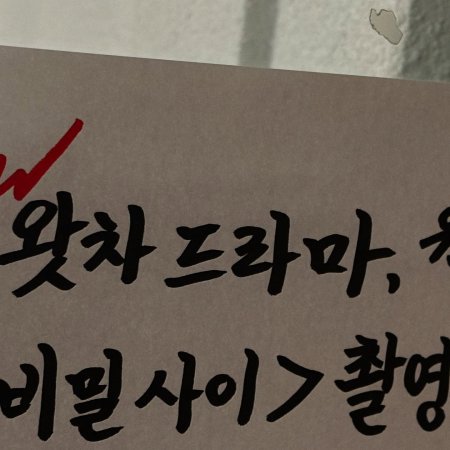 왓차 드라마,
비밀 사이> 촬영